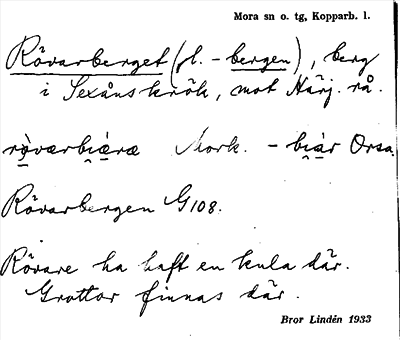 Mora sn o. tg, Kopparb. l.
Rövarberget (pl. -bergen), berg
i Sexånskrök, mot Härj. rå.
ròvarbi̯æ̀ræ Mork. - bi̯àr Orsa.
Rövarbergen G108.
Rövare ha haft en kula där.
Grottor finnas där.
Bror Lindén 1933